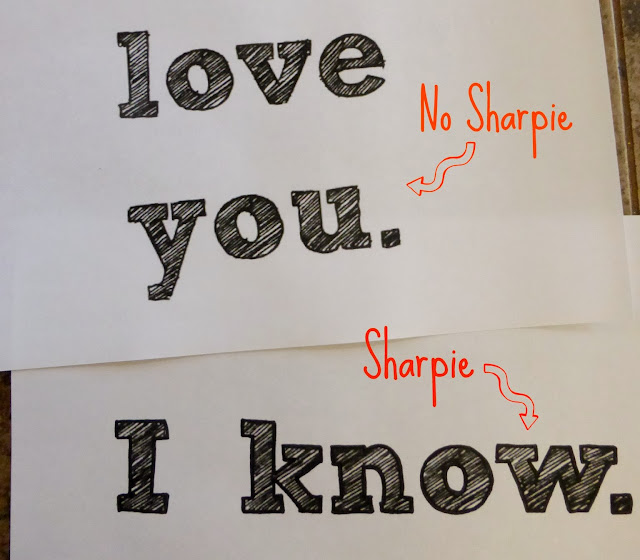 love
No Sharpie
you.
Sharpie
I know.